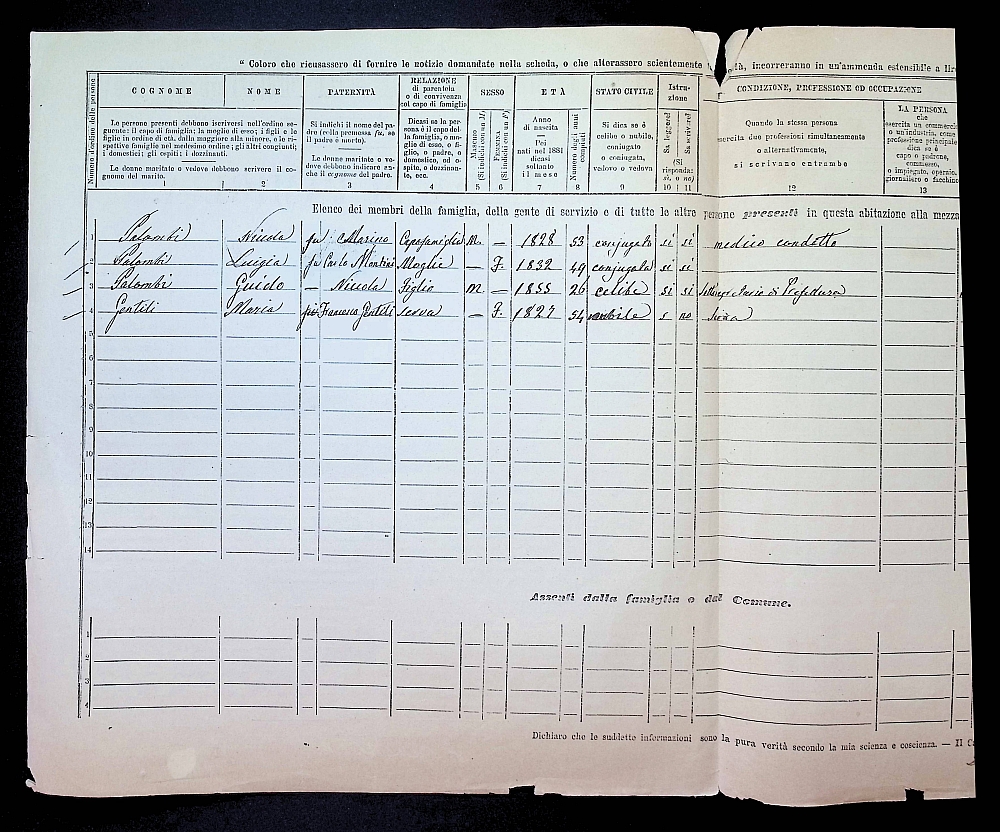 “ Coloro che ricusassero di fornire le notizie domandate nella scheda, o che alterassero scientemente tà, incorreranno in un'ammenda estensibile a lire
Numero d'ordine delle persone
COGNOME
NOME
PATERNITÀ
RELAZIONE
di parentela
o di convivenza
col capo di famiglia
SESSO
ETÀ
STATO CIVILE
Istru-
zione
CONDIZIONE, PROFESSIONE OD OCCUPAZIONE
Le persone presenti debbono iscriversi nell'ordine se-
guente: il capo di famiglia; la moglie di esso; i figli e le
figlie in ordine di età, dalla maggiore alla minore, o le ri-
spettive famiglie nel medesimo ordine; gli altri congiunti;
i domestici; gli ospiti; i dozzinanti.
Le donne maritate o vedove debbono scrivere il co-
gnome del marito.
Si indichi il nome del pa-
dre (colla premessa fu, se
il padre è morto).
Le donne maritate o ve-
dove debbono indicare an-
che il cognome del padre.
Dicasi se la per-
sona è il capo del-
la famiglia, o mo-
glie di esso, o fi-
glio, o padre, o
domestico, od o-
spite, o dozzinan-
te, ecc.
Maschio
(Si indichi con un M)
Femmina
(Si indichi con un F)
Anno
di nascita
Pei
nati nel 1881
dicasi
soltanto
il mese
Numero degli anni
compiuti
Si dica se è
celibe o nubile,
coniugato
o coniugata,
vedovo o vedova
Sa leggere?
Sa scrivere?
(Si
risponda:
sì, o no)
Quando la stessa persona
esercita due professioni simultaneamente
o alternativamente,
si scrivano entrambe
LA PERSONA
che
esercita un commercio
o un'industria, come
professione principale
dica se è
capo o padrone,
commesso,
o impiegato, operaio,
giornaliero o facchino
1 2 3 4 5 6 7 8 9 10 11 12 13
Elenco dei membri della famiglia, della gente di servizio e di tutte le altre persone presenti in questa abitazione alla mezza
1 Palombi Nicola fu Marino Capofamiglia M. — 1828 53 conjugato si si medico condotto
2 Palombi Luigia fu Carlo Montini Moglie — F. 1832 49 conjugata si si
3 Palombi Guido — Nicola Figlio M — 1855 26 celibe si si Sottosegretario di Prefettura
4 Gentili Maria fu Francesco Gentili serva — F. 1827 54 nubile s no
5
6
7
8
9
10
11
12
13
14
Assenti dalla famiglia o dal Comune.
1
2
3
4
Dichiaro che le suddette informazioni sono la pura verità secondo la mia scienza e coscienza. — Il C